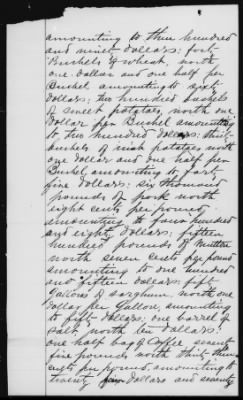 amounting to three hundred
and ninety dollars; forty
Bushels of wheat, worth
one dollar and one half per
Bushel amounting to sixty
dollars; two hundred bushels
of sweet potatoes, worth one
dollar per Bushel amounting
to two hundred dollars; thirty
bushels of irish potatoes worth
one dollar and one half per
Bushel, amounting to forty
five dollars; six thousand
pounds of pork worth
eight cents per pound
amounting to four hundred
and eighty dollars; fifteen
hundred pounds of Mutton
worth seven cents per pound
amounting to one hundred
and fifteen dollars; fifty
Gallons of sorghum, worth one
dollar per Gallon, amounting
to fifty dollars; one barrel of
salt, worth ten dollars;
one half bag of Coffee seventy
five pounds worth thirty three
cents per pound, amounting to
twenty dollars and seventy